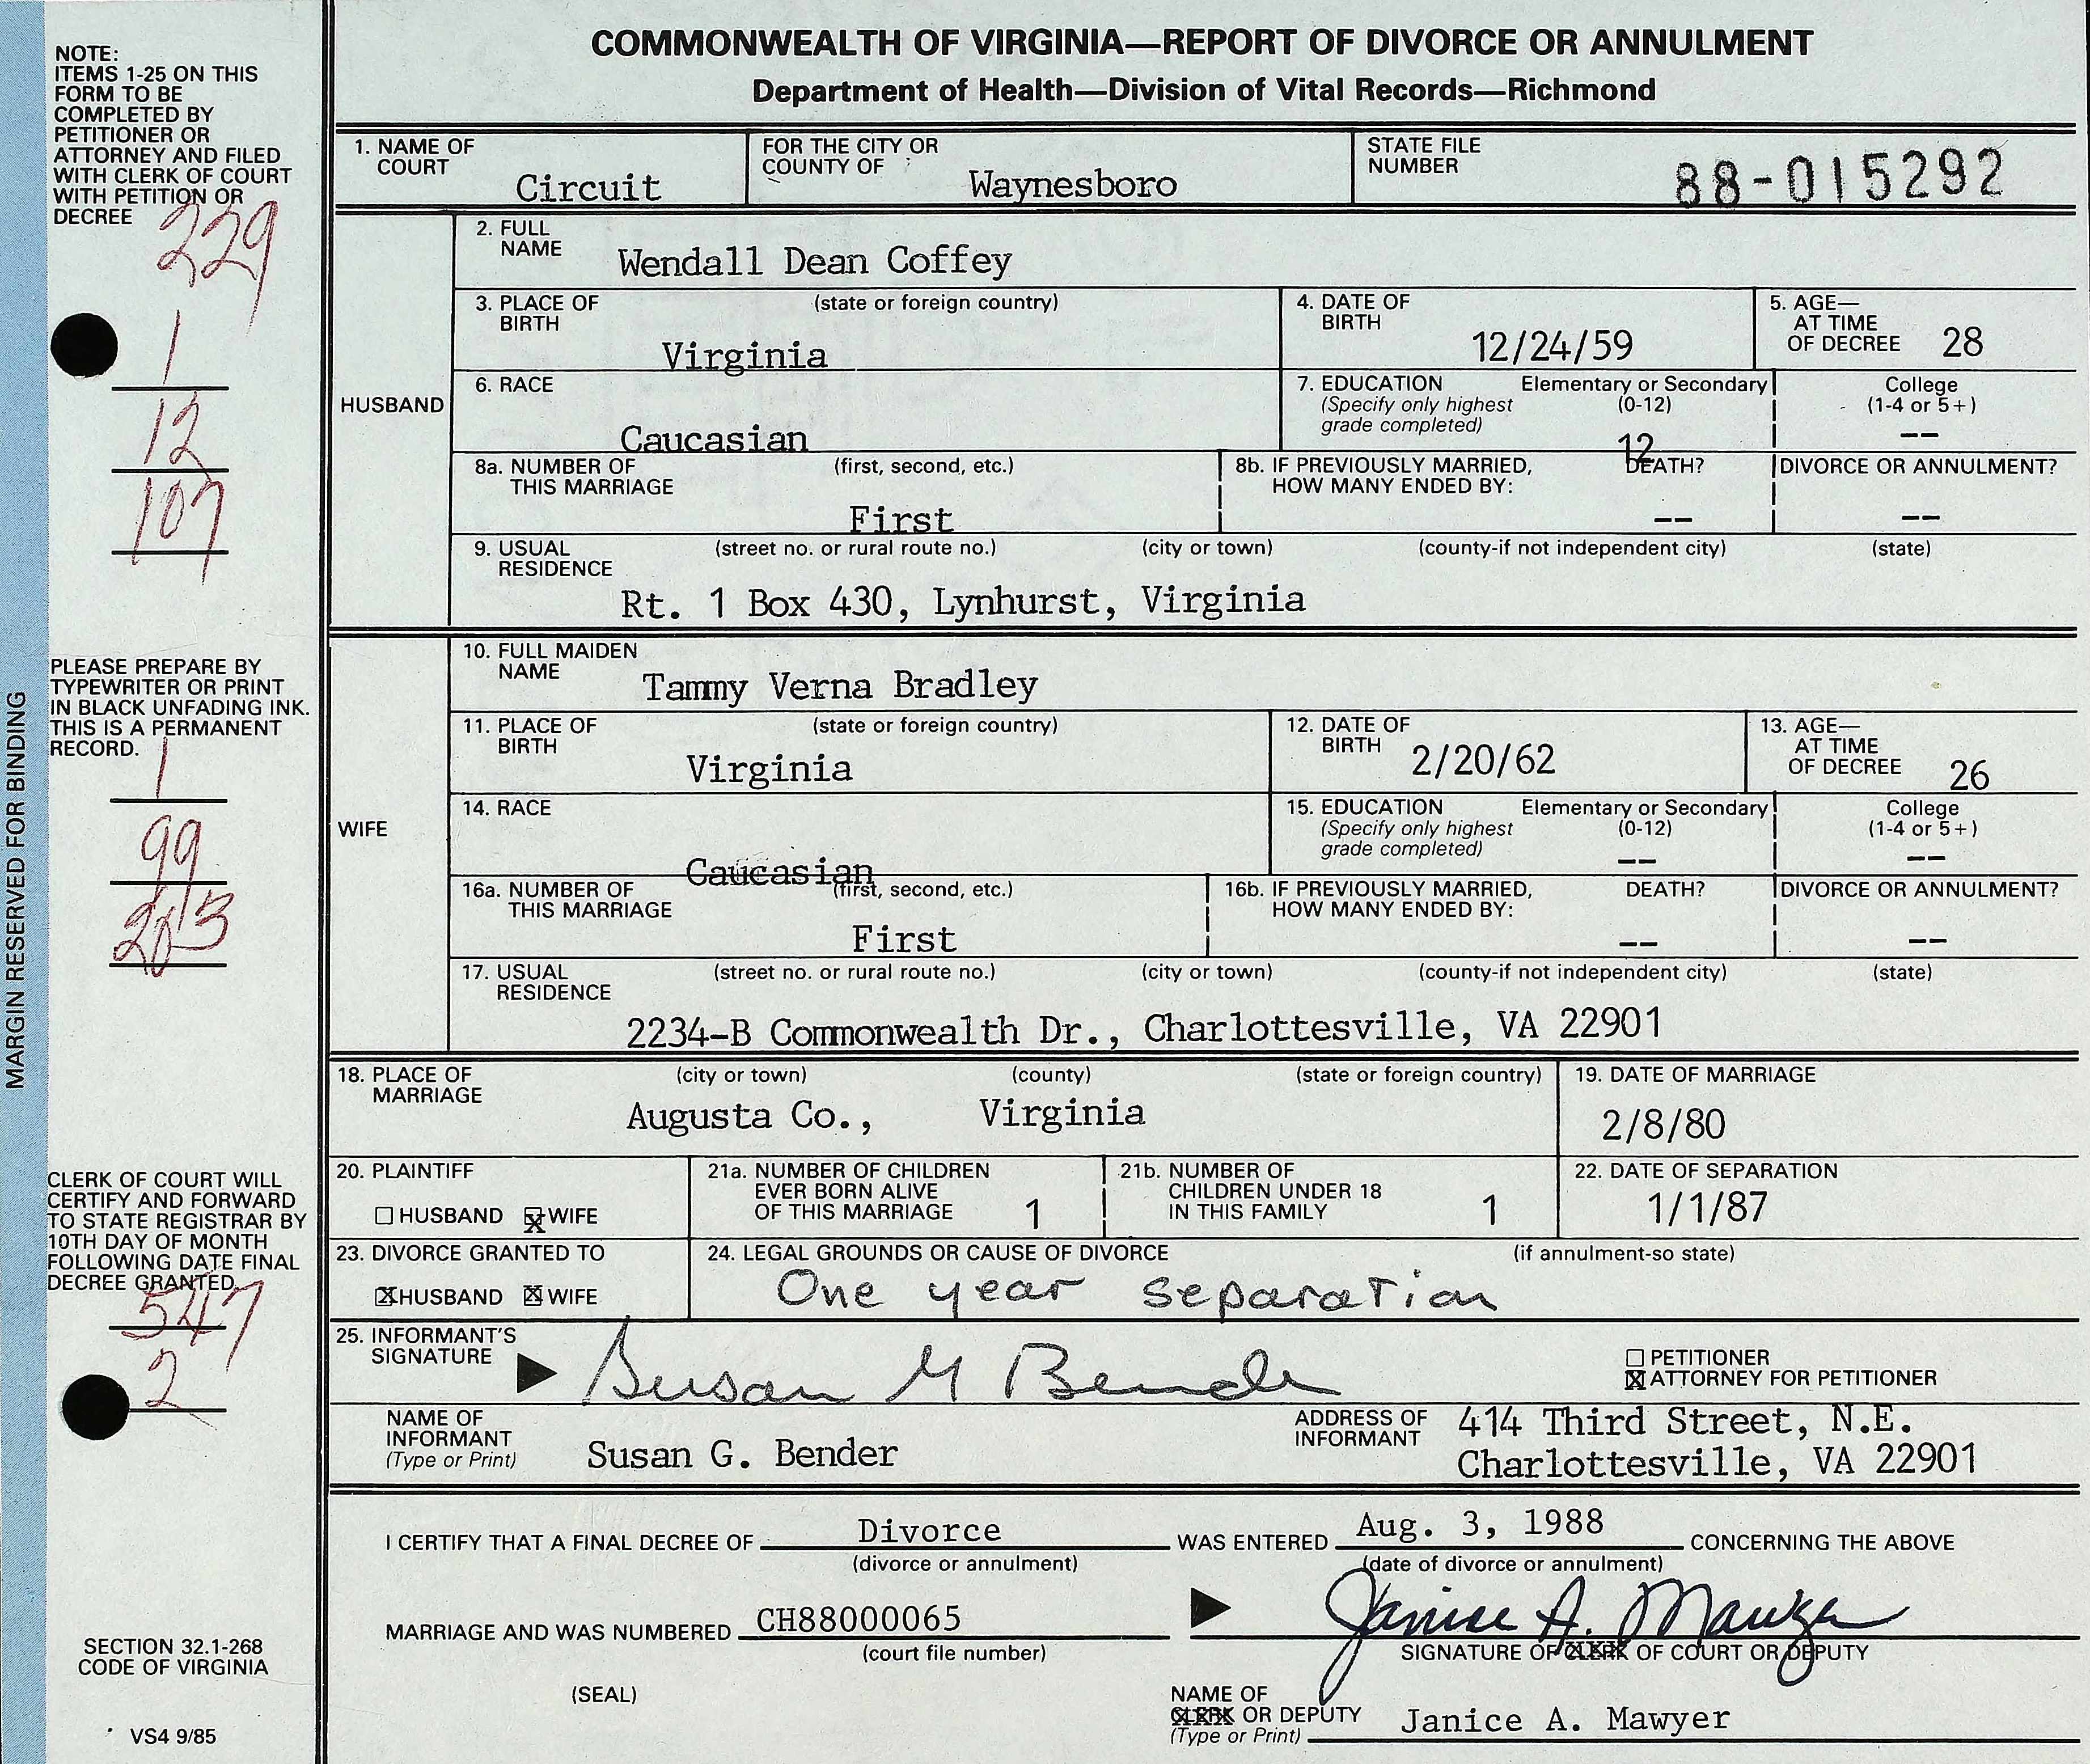 COMMONWEALTH OF VIRGINIA—REPORT OF DIVORCE OR ANNULMENT
Department of Health—Division of Vital Records—Richmond
NOTE:
ITEMS 1-25 ON THIS
FORM TO BE
COMPLETED BY
PETITIONER OR
ATTORNEY AND FILED
WITH CLERK OF COURT
WITH PETITION OR
DECREE
229
1
12
107
MARGIN RESERVED FOR BINDING
PLEASE PREPARE BY
TYPEWRITER OR PRINT
IN BLACK UNFADING INK.
THIS IS A PERMANENT
RECORD.
1
99
CLERK OF COURT WILL
CERTIFY AND FORWARD
TO STATE REGISTRAR BY
10TH DAY OF MONTH
FOLLOWING DATE FINAL
DECREE GRANTED.
547
2
SECTION 32.1-268
CODE OF VIRGINIA
VS4 9/85
1. NAME OF COURT Circuit
FOR THE CITY OR COUNTY OF Waynesboro
STATE FILE NUMBER 88-015292
HUSBAND
2. FULL NAME Wendall Dean Coffey
3. PLACE OF BIRTH (state or foreign country) Virginia
4. DATE OF BIRTH 12/24/59
5. AGE— AT TIME OF DECREE 28
6. RACE Caucasian
7. EDUCATION (Specify only highest grade completed) Elementary or Secondary (0-12) 12
College (1-4 or 5+) --
8a. NUMBER OF THIS MARRIAGE (first, second, etc.) First
8b. IF PREVIOUSLY MARRIED, HOW MANY ENDED BY: DEATH? --
DIVORCE OR ANNULMENT? --
9. USUAL RESIDENCE (street no. or rural route no.) (city or town) (county-if not independent city) (state)
Rt. 1 Box 430, Lynhurst, Virginia
WIFE
10. FULL MAIDEN NAME Tammy Verna Bradley
11. PLACE OF BIRTH (state or foreign country) Virginia
12. DATE OF BIRTH 2/20/62
13. AGE— AT TIME OF DECREE 26
14. RACE Caucasian
15. EDUCATION (Specify only highest grade completed) Elementary or Secondary (0-12) --
College (1-4 or 5+) --
16a. NUMBER OF THIS MARRIAGE (first, second, etc.) First
16b. IF PREVIOUSLY MARRIED, HOW MANY ENDED BY: DEATH? --
DIVORCE OR ANNULMENT? --
17. USUAL RESIDENCE (street no. or rural route no.) (city or town) (county-if not independent city) (state)
2234-B Commonwealth Dr., Charlottesville, VA 22901
18. PLACE OF MARRIAGE (city or town) (county) (state or foreign country)
Augusta Co., Virginia
19. DATE OF MARRIAGE 2/8/80
20. PLAINTIFF
☐ HUSBAND ☒ WIFE
21a. NUMBER OF CHILDREN EVER BORN ALIVE OF THIS MARRIAGE 1
21b. NUMBER OF CHILDREN UNDER 18 IN THIS FAMILY 1
22. DATE OF SEPARATION 1/1/87
23. DIVORCE GRANTED TO
☒ HUSBAND ☒ WIFE
24. LEGAL GROUNDS OR CAUSE OF DIVORCE (if annulment-so state)
One year separation
25. INFORMANT'S SIGNATURE Susan G Bender
☐ PETITIONER
☒ ATTORNEY FOR PETITIONER
NAME OF INFORMANT (Type or Print) Susan G. Bender
ADDRESS OF INFORMANT 414 Third Street, N.E.
Charlottesville, VA 22901
I CERTIFY THAT A FINAL DECREE OF Divorce WAS ENTERED Aug. 3, 1988 CONCERNING THE ABOVE
(divorce or annulment) (date of divorce or annulment)
MARRIAGE AND WAS NUMBERED CH88000065 Janice A. Mawyer
(court file number) SIGNATURE OF CLERK OF COURT OR DEPUTY
(SEAL)
NAME OF CLERK OR DEPUTY (Type or Print) Janice A. Mawyer